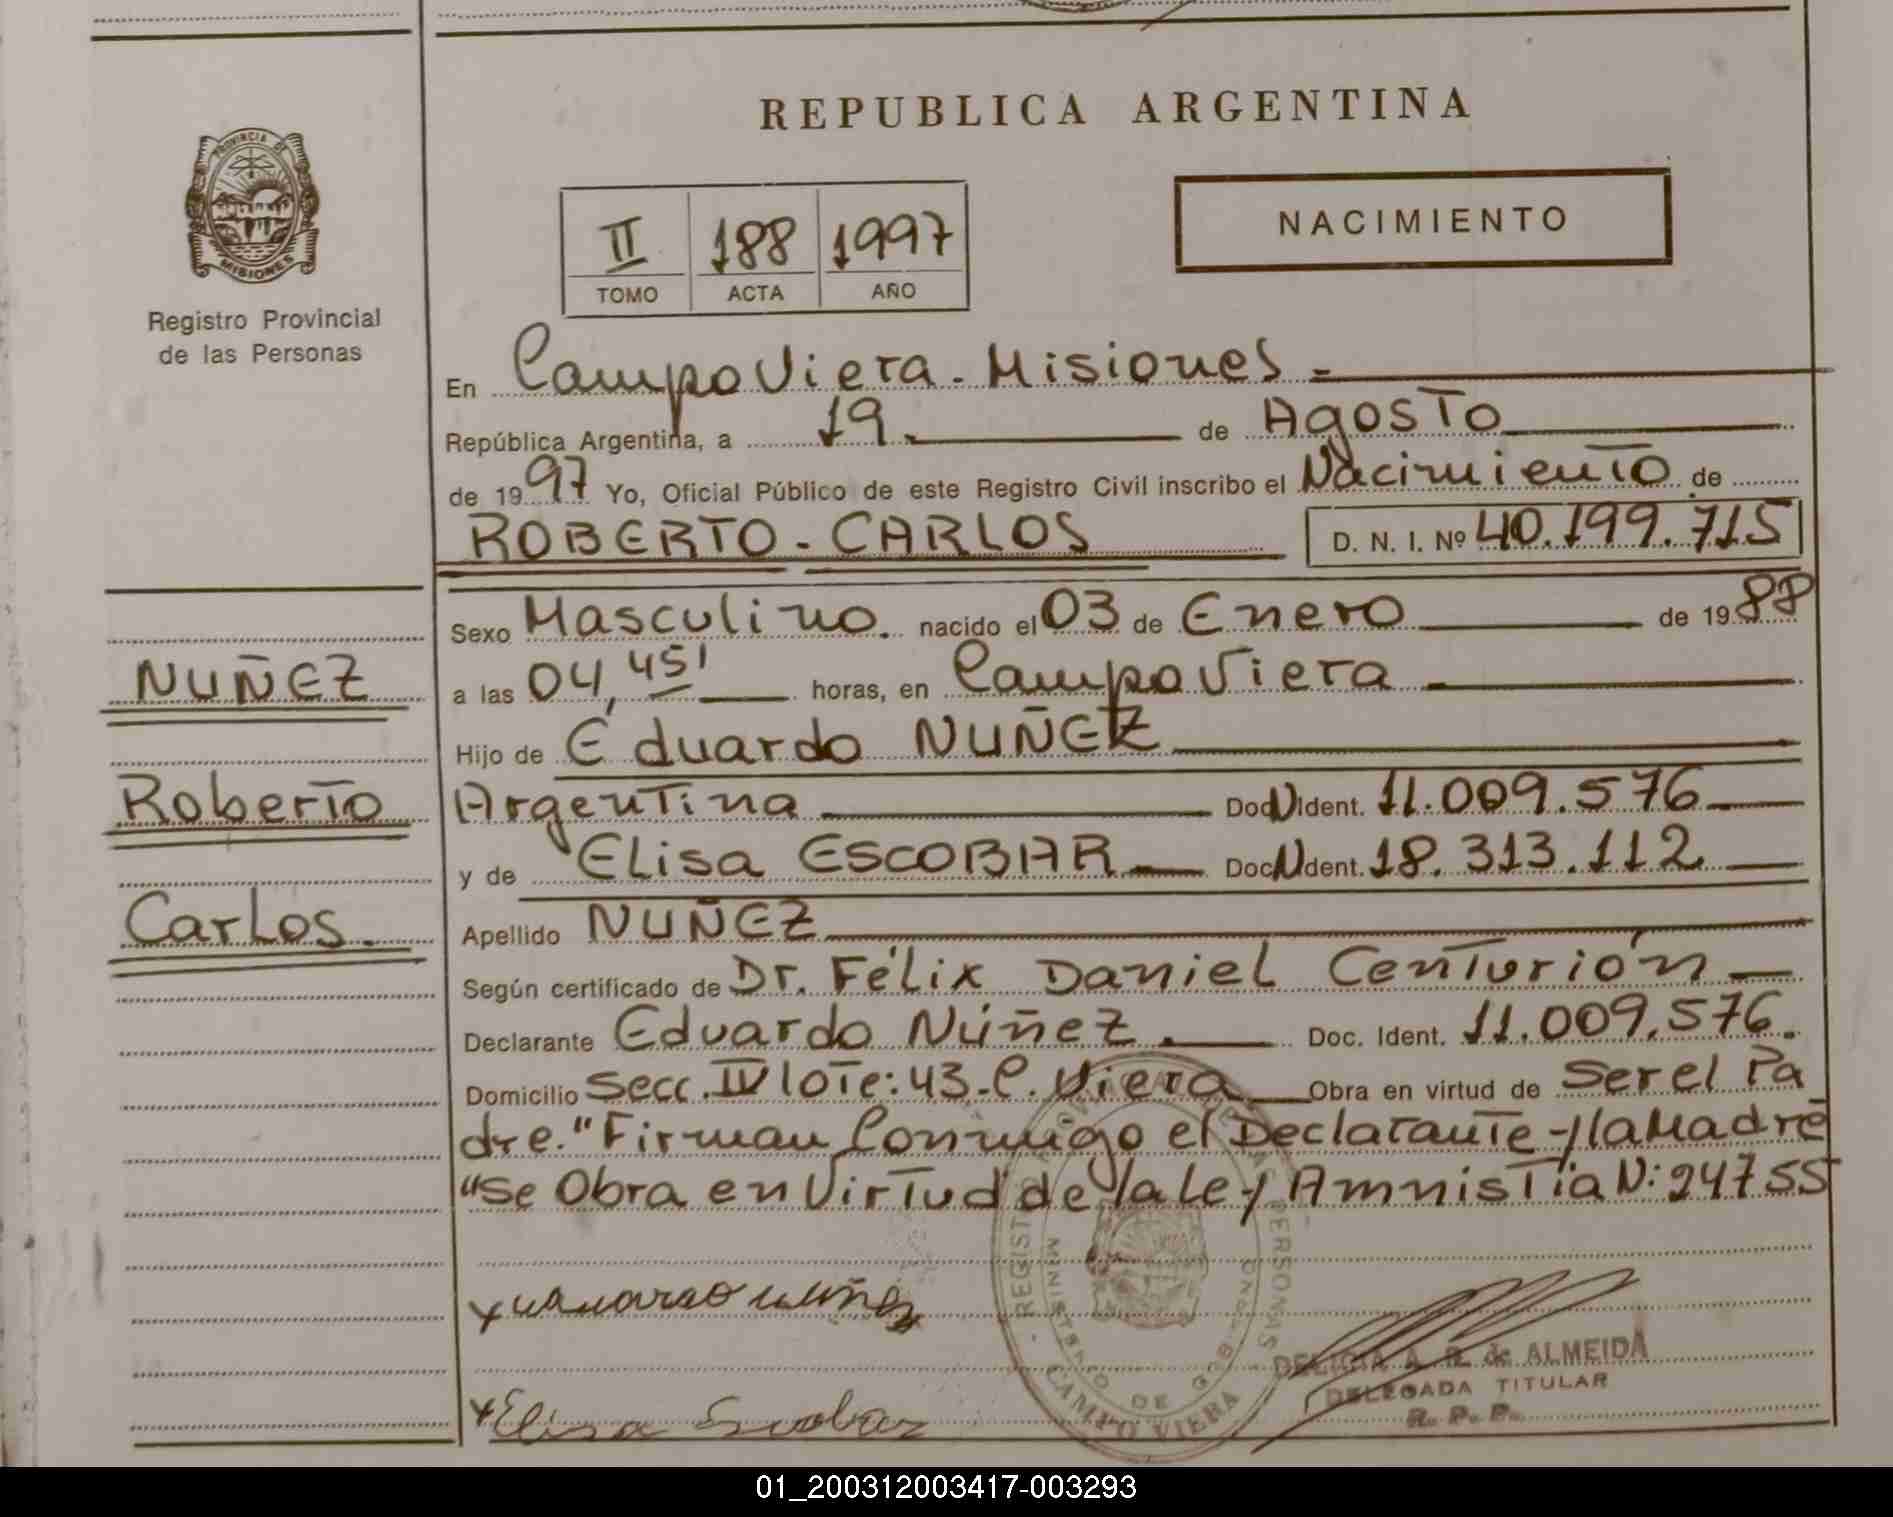 REPUBLICA ARGENTINA
PROVINCIA DE
MISIONES
Registro Provincial
de las Personas
II 188 1997
TOMO ACTA AÑO
NACIMIENTO
En Campo Viera - Misiones -
República Argentina, a 19 de Agosto
de 1997 Yo, Oficial Público de este Registro Civil inscribo el Nacimiento de
ROBERTO - CARLOS D. N. I. Nº 40.199.715
Sexo Masculino. nacido el 03 de Enero de 1988
a las 04,45' horas, en Campo Viera
Hijo de Eduardo NUÑEZ
Argentina Doc N Ident. 11.009.576
y de Elisa ESCOBAR Doc N Ident. 18.313.112
Apellido NUÑEZ
Según certificado de Dr. Félix Daniel Centurión
Declarante Eduardo Núñez. Doc. Ident. 11.009.576.
Domicilio Secc. IV lote: 43 - C. Viera Obra en virtud de Ser el Pa
dre." Firman Conmigo el Declarante y la Madre
"Se Obra en Virtud de la Ley Amnistia N: 24755
NUÑEZ
Roberto
Carlos.
Elisa Escobar
REGISTRO PERSONAS
MINISTERIO DE GOB
CAMPO VIERA
DELICIA A. R. de ALMEIDA
DELEGADA TITULAR
R. P. P.
01_200312003417-003293